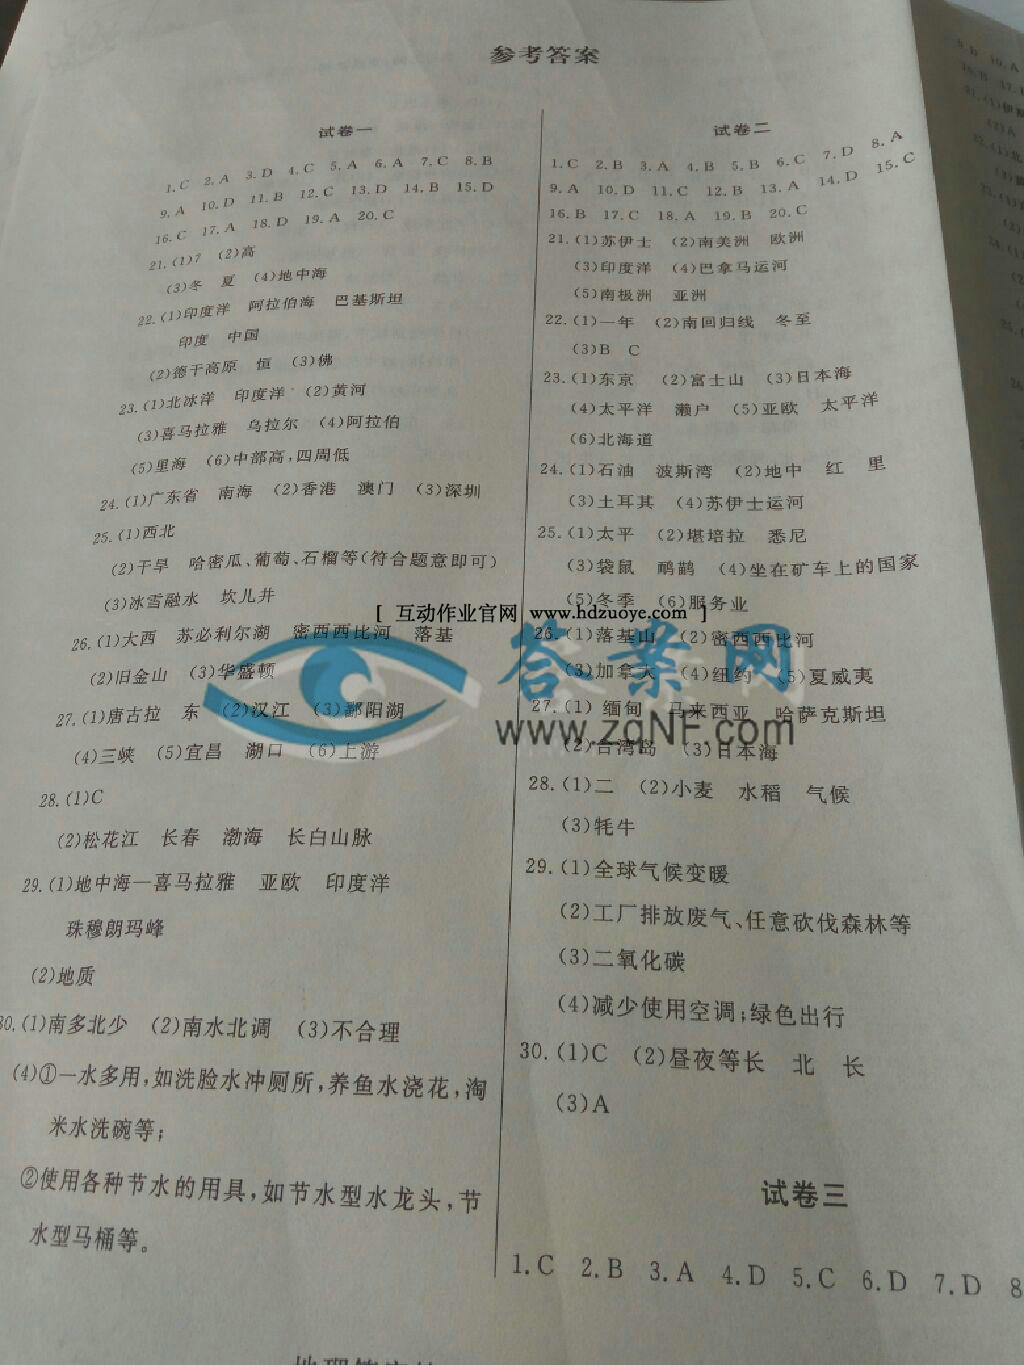 参考答案
试卷一
1.C 2.A 3.D 4.C 5.A 6.A 7.C 8.B
9.A 10.D 11.B 12.C 13.D 14.B 15.D
16.C 17.A 18.D 19.A 20.C
21.(1)7 (2)高
(3)冬 夏 (4)地中海
22.(1)印度洋 阿拉伯海 巴基斯坦
印度 中国
(2)德干高原 恒 (3)佛
23.(1)北冰洋 印度洋 (2)黄河
(3)喜马拉雅 乌拉尔 (4)阿拉伯
(5)里海 (6)中部高,四周低
24.(1)广东省 南海 (2)香港 澳门 (3)深圳
25.(1)西北
(2)干旱 哈密瓜、葡萄、石榴等(符合题意即可)
(3)冰雪融水 坎儿井
26.(1)大西 苏必利尔湖 密西西比河 落基
(2)旧金山 (3)华盛顿
27.(1)唐古拉 东 (2)汉江 (3)鄱阳湖
(4)三峡 (5)宜昌 湖口 (6)上游
28.(1)C
(2)松花江 长春 渤海 长白山脉
29.(1)地中海—喜马拉雅 亚欧 印度洋
珠穆朗玛峰
(2)地质
30.(1)南多北少 (2)南水北调 (3)不合理
(4)①一水多用,如洗脸水冲厕所,养鱼水浇花,淘
米水洗碗等;
②使用各种节水的用具,如节水型水龙头,节
水型马桶等。
试卷二
1.C 2.B 3.A 4.B 5.B 6.C 7.D 8.A
9.A 10.D 11.C 12.B 13.A 14.D 15.C
16.B 17.C 18.A 19.B 20.C
21.(1)苏伊士 (2)南美洲 欧洲
(3)印度洋 (4)巴拿马运河
(5)南极洲 亚洲
22.(1)一年 (2)南回归线 冬至
(3)B C
23.(1)东京 (2)富士山 (3)日本海
(4)太平洋 濑户 (5)亚欧 太平洋
(6)北海道
24.(1)石油 波斯湾 (2)地中 红 里
(3)土耳其 (4)苏伊士运河
25.(1)太平 (2)堪培拉 悉尼
(3)袋鼠 鸸鹋 (4)坐在矿车上的国家
(5)冬季 (6)服务业
[ 互动作业官网 www.hdzuoye.com ]
26.(1)落基山 (2)密西西比河
(3)加拿大 (4)纽约 (5)夏威夷
27.(1)缅甸 马来西亚 哈萨克斯坦
(2)台湾岛 (3)日本海
答案网
www.zqNF.com
28.(1)二 (2)小麦 水稻 气候
(3)牦牛
29.(1)全球气候变暖
(2)工厂排放废气、任意砍伐森林等
(3)二氧化碳
(4)减少使用空调;绿色出行
30.(1)C (2)昼夜等长 北 长
(3)A
试卷三
1.C 2.B 3.A 4.D 5.C 6.D 7.D 8